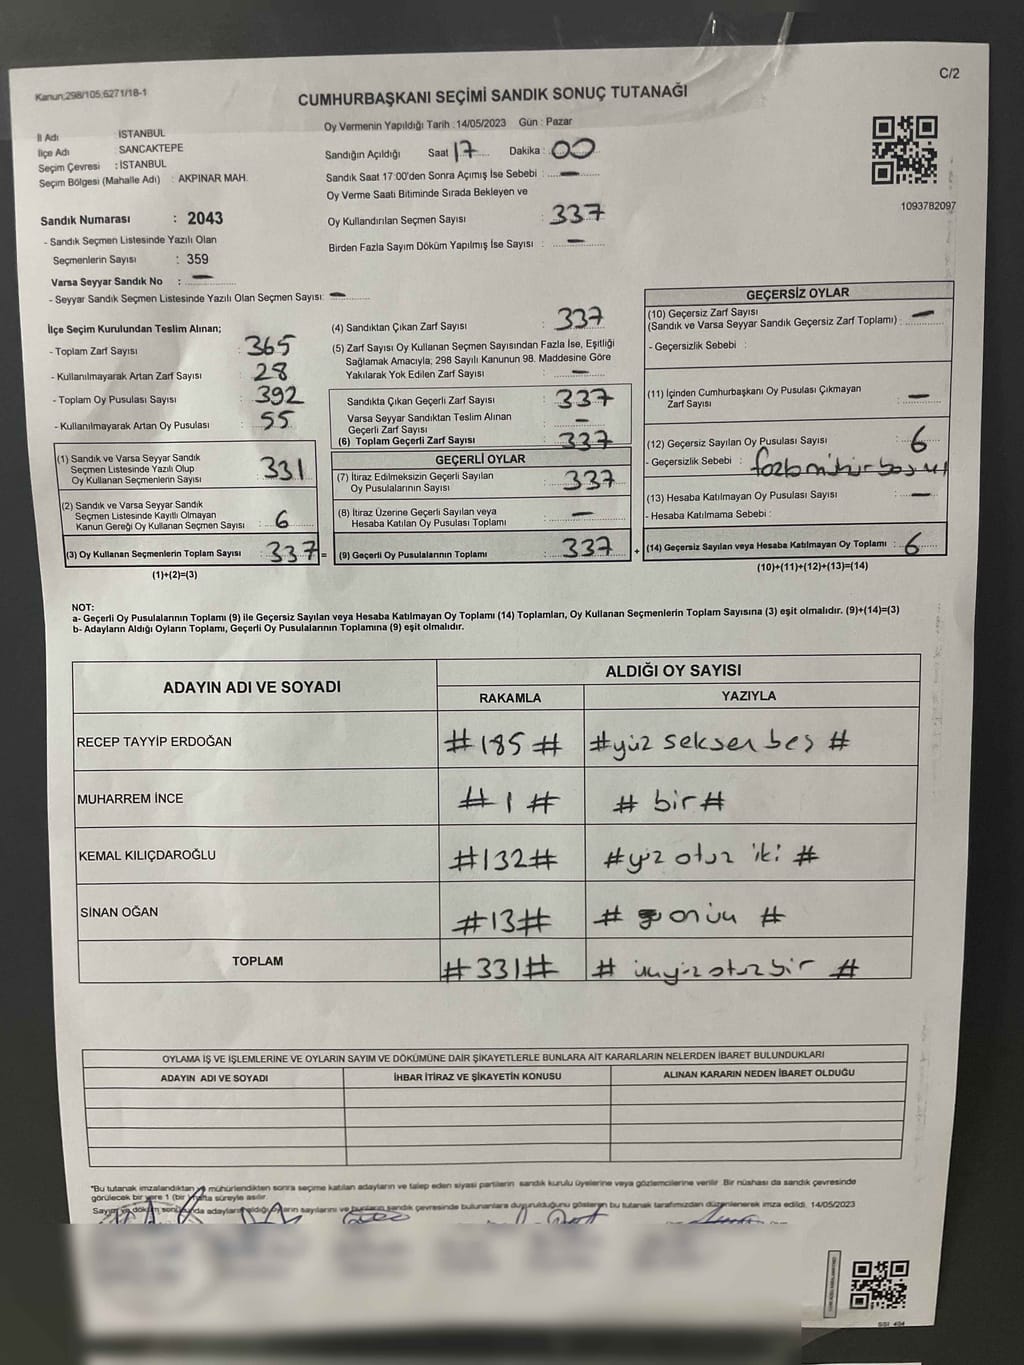 Kanun;298/105;6271/18-1
C/2
CUMHURBAŞKANI SEÇİMİ SANDIK SONUÇ TUTANAĞI
İl Adı : İSTANBUL
İlçe Adı SANCAKTEPE
Seçim Çevresi : İSTANBUL
Seçim Bölgesi (Mahalle Adı) : AKPINAR MAH.
Sandık Numarası : 2043
- Sandık Seçmen Listesinde Yazılı Olan
Seçmenlerin Sayısı : 359
Varsa Seyyar Sandık No : —
- Seyyar Sandık Seçmen Listesinde Yazılı Olan Seçmen Sayısı: —
Oy Vermenin Yapıldığı Tarih : 14/05/2023 Gün : Pazar
Sandığın Açıldığı Saat 17 Dakika : 00
Sandık Saat 17:00'den Sonra Açımış İse Sebebi : —
Oy Verme Saati Bitiminde Sırada Bekleyen ve
Oy Kullandırılan Seçmen Sayısı : 337
Birden Fazla Sayım Döküm Yapılmış İse Sayısı : —
1093782097
İlçe Seçim Kurulundan Teslim Alınan;
- Toplam Zarf Sayısı : 365
- Kullanılmayarak Artan Zarf Sayısı : 28
- Toplam Oy Pusulası Sayısı : 392
- Kullanılmayarak Artan Oy Pusulası : 55
(1) Sandık ve Varsa Seyyar Sandık
Seçmen Listesinde Yazılı Olup
Oy Kullanan Seçmenlerin Sayısı : 331
(2) Sandık ve Varsa Seyyar Sandık
Seçmen Listesinde Kayıtlı Olmayan
Kanun Gereği Oy Kullanan Seçmen Sayısı : 6
(3) Oy Kullanan Seçmenlerin Toplam Sayısı : 337 =
(1)+(2)=(3)
(4) Sandıktan Çıkan Zarf Sayısı : 337
(5) Zarf Sayısı Oy Kullanan Seçmen Sayısından Fazla İse, Eşitliği
Sağlamak Amacıyla; 298 Sayılı Kanunun 98. Maddesine Göre
Yakılarak Yok Edilen Zarf Sayısı : —
Sandıkta Çıkan Geçerli Zarf Sayısı : 337
Varsa Seyyar Sandıktan Teslim Alınan
Geçerli Zarf Sayısı : —
(6) Toplam Geçerli Zarf Sayısı : 337
GEÇERLİ OYLAR
(7) İtiraz Edilmeksizin Geçerli Sayılan
Oy Pusulalarının Sayısı : 337
(8) İtiraz Üzerine Geçerli Sayılan veya
Hesaba Katılan Oy Pusulası Toplamı : —
(9) Geçerli Oy Pusulalarının Toplamı : 337 +
GEÇERSİZ OYLAR
(10) Geçersiz Zarf Sayısı
(Sandık ve Varsa Seyyar Sandık Geçersiz Zarf Toplamı) : —
- Geçersizlik Sebebi :
(11) İçinden Cumhurbaşkanı Oy Pusulası Çıkmayan
Zarf Sayısı : —
(12) Geçersiz Sayılan Oy Pusulası Sayısı : 6
- Geçersizlik Sebebi : fazla mühür basımı
(13) Hesaba Katılmayan Oy Pusulası Sayısı : —
- Hesaba Katılmama Sebebi :
(14) Geçersiz Sayılan veya Hesaba Katılmayan Oy Toplamı : 6
(10)+(11)+(12)+(13)=(14)
NOT:
a- Geçerli Oy Pusulalarının Toplamı (9) ile Geçersiz Sayılan veya Hesaba Katılmayan Oy Toplamı (14) Toplamları, Oy Kullanan Seçmenlerin Toplam Sayısına (3) eşit olmalıdır. (9)+(14)=(3)
b- Adayların Aldığı Oyların Toplamı, Geçerli Oy Pusulalarının Toplamına (9) eşit olmalıdır.
ADAYIN ADI VE SOYADI ALDIĞI OY SAYISI
RAKAMLA YAZIYLA
RECEP TAYYİP ERDOĞAN #185# #yüz seksen beş#
MUHARREM İNCE #1# #bir#
KEMAL KILIÇDAROĞLU #132# #yüz otuz iki#
SİNAN OĞAN #13# # onüç #
TOPLAM #331# #üçyüzotuzbir#
OYLAMA İŞ VE İŞLEMLERİNE VE OYLARIN SAYIM VE DÖKÜMÜNE DAİR ŞİKAYETLERLE BUNLARA AİT KARARLARIN NELERDEN İBARET BULUNDUKLARI
ADAYIN ADI VE SOYADI İHBAR İTİRAZ VE ŞİKAYETİN KONUSU ALINAN KARARIN NEDEN İBARET OLDUĞU
*Bu tutanak imzalandıktan ve mühürlendikten sonra seçime katılan adayların ve talep eden siyasi partilerin sandık kurulu üyelerine veya gözlemcilerine verilir. Bir nüshası da sandık çevresinde
görülecek bir yere 1 (bir) hafta süreyle asılır.
Sayım ve döküm sonucunda adayların aldığı oyların sayılarını ve bunların sandık çevresinde bulunanlara duyurulduğunu gösteren bu tutanak tarafımızdan düzenlenerek imza edildi. 14/05/2023